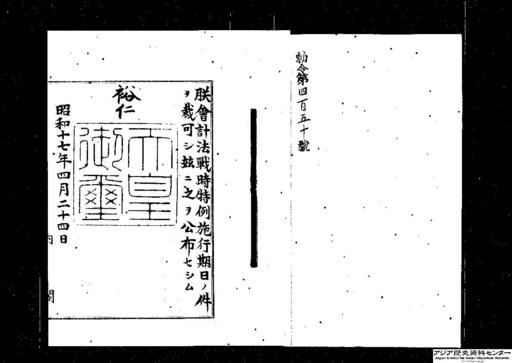 勅令第四百五十號
朕會計法戰時特例施行期日ノ件
ヲ裁可シ玆ニ之ヲ公布セシム
裕仁
天皇御璽
昭和十七年四月二十四日
内閣
アジア歴史資料センター
Japan Center for Asian Historical Records